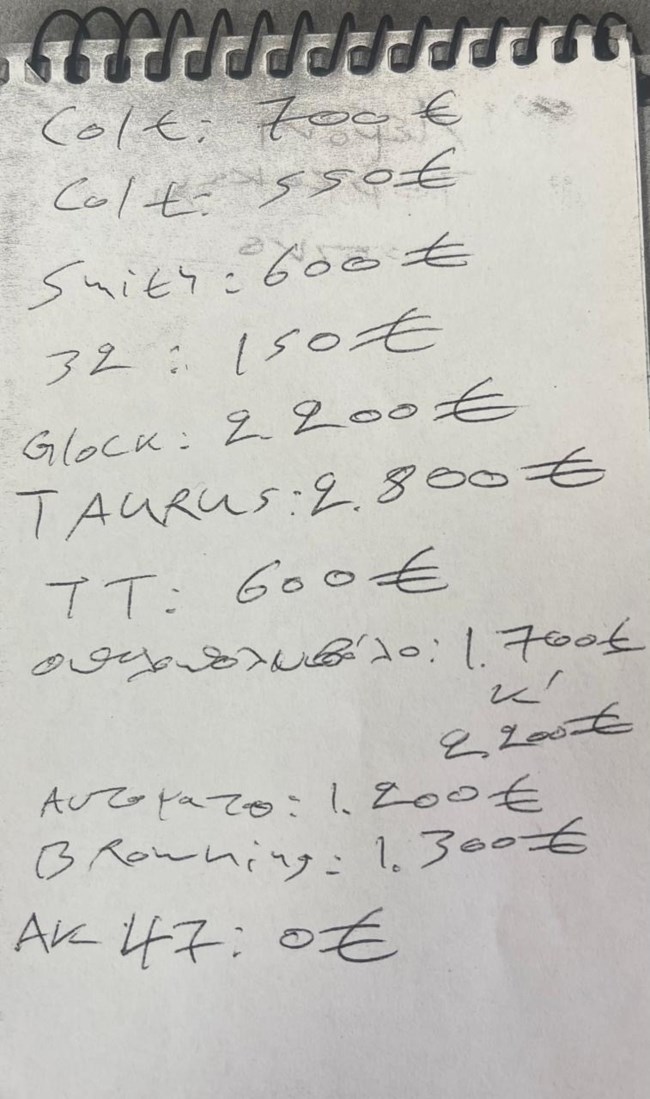 Colt: 700 €
Colt: 550 €
Smith: 600 €
32 : 150 €
Glock: 2.200 €
TAURUS: 2.800 €
TT: 600 €
1.700 €
κ'
2.200 €
Αυτοματο: 1.200 €
BRowning: 1.300 €
AK 47: 0 €